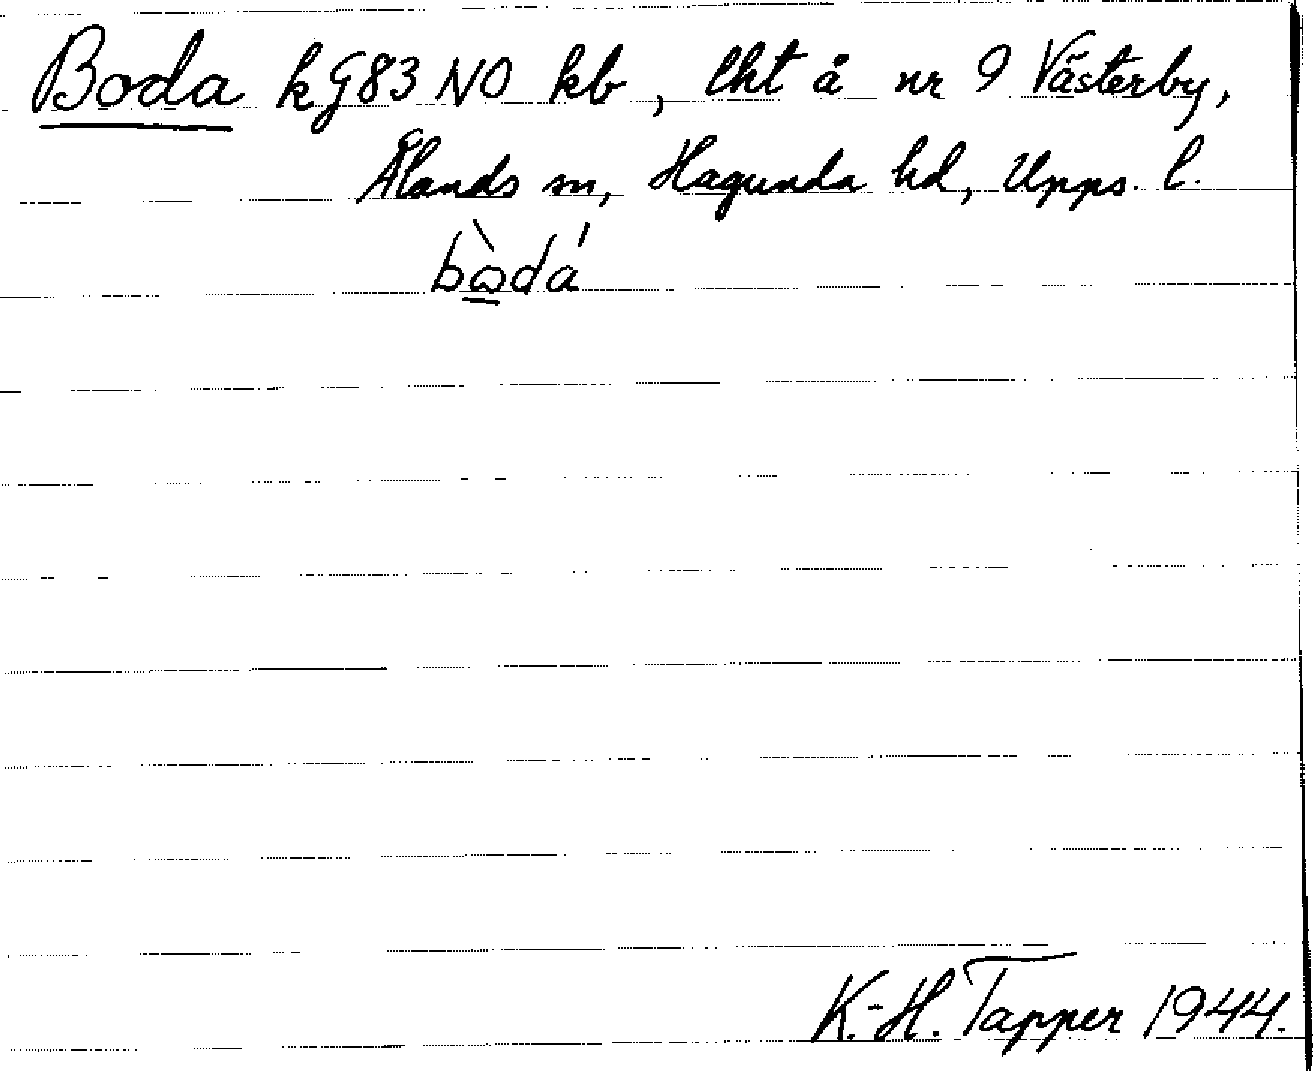 Boda k G83 NO kb, lht å nr 9 Västerby,
Ålands sn, Hagunda hd, Upps. l.
bὼ̲dá
K.-H. Tapper 1944.